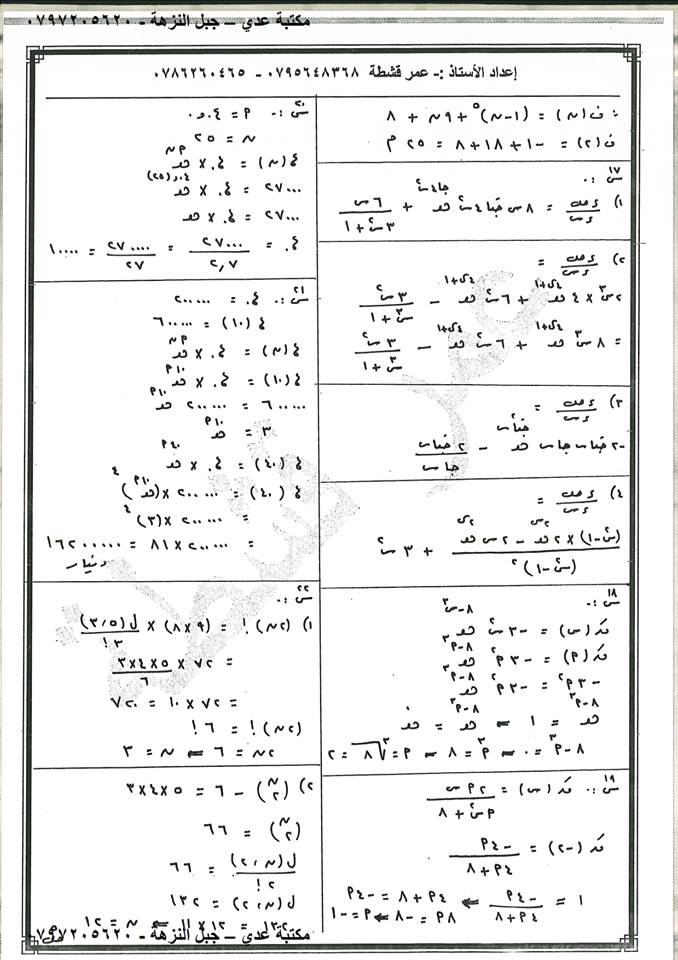 مكتبة عدي – جبل النزهة - ٠٧٩٧٢٠٥٦٢٠
إعداد الأستاذ :- عمر قشطة ٠٧٩٥٦٤٨٣٦٨ - ٠٧٨٦٢٦٠٤٦٥
ف(ن) = (١-ن)^٥ + ٩ن + ٨
ف(٢) = -١ + ١٨ + ٨ = ٢٥ م
س١٧ :-
١) ءص/ءس = ٨س جتا٤س^٢ هـ^(جا٤س^٢) + ٦س/(٣س^٢+١)
٢) ءص/ءس =
٢س^٣ × ٤ هـ^(٤س+١) + ٦س^٢ هـ^(٤س+١) - ٣س^٢/(س^٣+١)
= ٨س^٣ هـ^(٤س+١) + ٦س^٢ هـ^(٤س+١) - ٣س^٢/(س^٣+١)
٣) ءص/ءس =
-٢جتاس جاس هـ^(جتا^٢س) - ٢جتاس/جاس
٤) ءص/ءس =
((س^٢-١) × ٢هـ^(٢س) - ٢س هـ^(٢س))/(س^٢-١)^٢ + ٣س^٢
س١٨ :-
قَ(س) = -٣س^٢ هـ^(٨-س^٣)
قَ(٢) = -٣م^٢ هـ^(٨-م^٣)
-٣م^٢ = -٣م^٢ هـ^(٨-م^٣)
هـ^(٨-م^٣) = ١ ← هـ^(٨-م^٣) = هـ^٠
٨-م^٣ = ٠ ← م^٣ = ٨ ← م = ∛٨ = ٢
س١٩ :- قَ(س) = ٢م س/(م س^٢+٨)
قَ(-٢) = -٤م/(٤م+٨)
١ = -٤م/(٤م+٨) ← ٤م+٨ = -٤م
٨م = -٨ ← م = -١
س٢٠ :- م = ٠,٠٤
ن = ٢٥
ع(ن) = ع. × هـ^(م ن)
٢٧٠٠٠ = ع. × هـ^(٠,٠٤(٢٥))
٢٧٠٠٠ = ع. × هـ
ع. = ٢٧٠٠٠/٢,٧ = ٢٧٠٠٠٠/٢٧ = ١٠٠٠٠
س٢١ :- ع. = ٢٠٠٠٠٠
ع(١٠) = ٦٠٠٠٠٠
ع(ن) = ع. × هـ^(م ن)
ع(١٠) = ع. × هـ^(١٠م)
٦٠٠٠٠٠ = ٢٠٠٠٠٠ هـ^(١٠م)
٣ = هـ^(١٠م)
ع(٤٠) = ع. × هـ^(٤٠م)
ع(٤٠) = ٢٠٠٠٠٠ × (هـ^(١٠م))^٤
= ٢٠٠٠٠٠ × (٣)^٤
= ٢٠٠٠٠٠ × ٨١ = ١٦٢٠٠٠٠٠ دينار
س٢٢ :-
١) (٢ن)! = (٨×٩) × ل(٣،٥)/٣!
= ٧٢ × ٣×٤×٥/٦
= ٧٢ × ١٠ = ٧٢٠
(٢ن)! = ٦!
٢ن = ٦ ← ن = ٣
٢) (ن/٢) - ٦ = ٣×٤×٥
(ن/٢) = ٦٦
ل(ن،٢)/٢! = ٦٦
ل(ن،٢) = ١٣٢
١٣٢ = ١٢ × ١١ ← ن = ١٢
مكتبة عدي – جبل النزهة - ٠٧٩٧٢٠٥٦٢٠